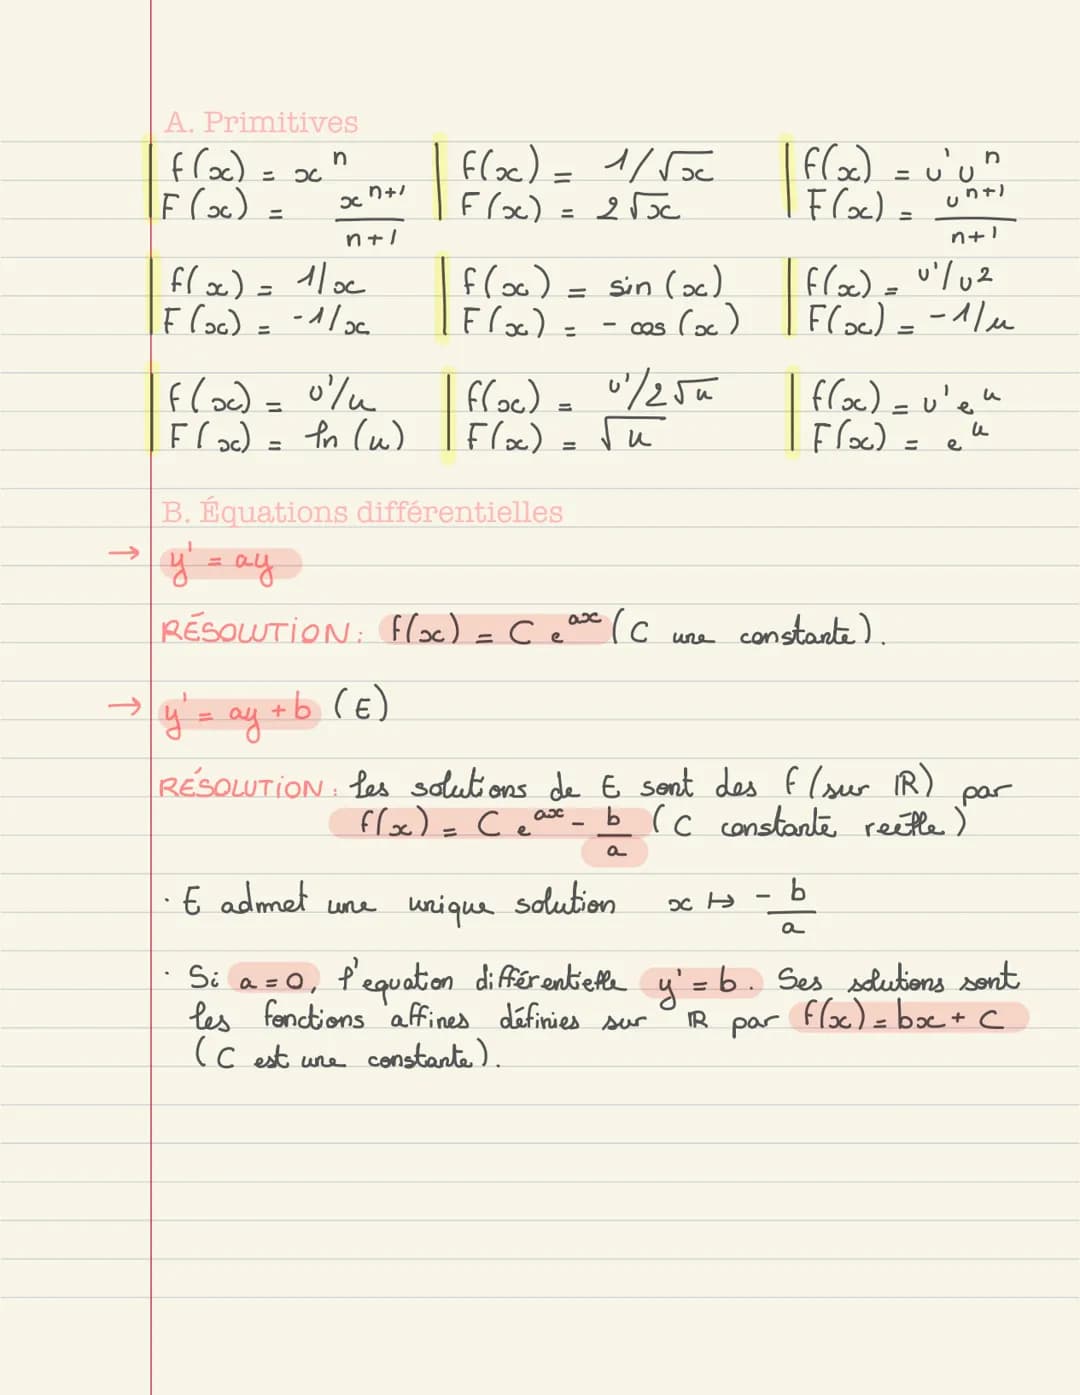 A. Primitives
f(x) = x^n
F(x) = x^{n+1}/n+1
f(x) = 1/√x
F(x) = 2√x
f(x) = u'u^n
F(x) = u^{n+1}/n+1
f(x) = 1/x
F(x) = -1/x
f(x) = sin(x)
F(x) = - cos(x)
f(x) = u'/u²
F(x) = -1/u
f(x) = u'/u
F(x) = ln(u)
f(x) = u'/2√u
F(x) = √u
f(x) = u'e^u
F(x) = e^u
B. Équations différentielles
→ y' = ay
RÉSOLUTION : f(x) = C e^{ax} (C une constante).
→ y' = ay + b (E)
RÉSOLUTION : les solutions de E sont des f (sur ℝ) par
f(x) = C e^{ax} - b/a (C constante réelle)
· E admet une unique solution x ↦ - b/a
· Si a = 0, l'equation différentielle y' = b. Ses solutions sont
les fonctions affines définies sur ℝ par f(x) = bx + C
(C est une constante).